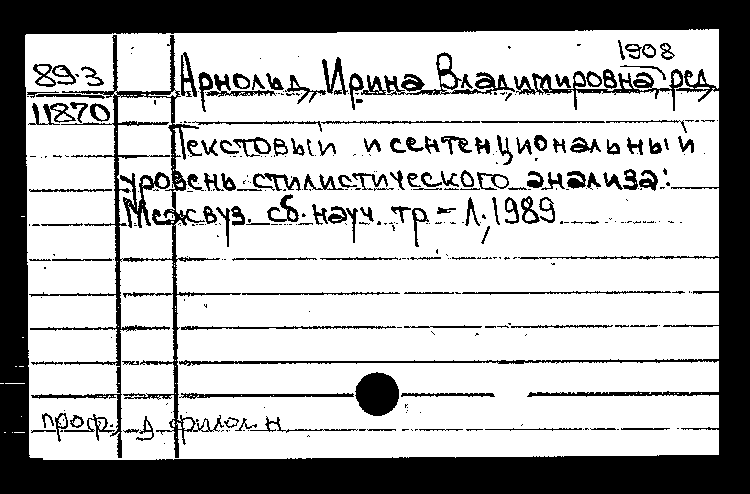 1908
89-3 Арнольд, Ирина Владимировна, ред.
11870
Текстовый и сентенциональный
уровень стилистического анализа:
Межвуз. сб. науч. тр. – Л., 1989.
проф., д. филол. н.